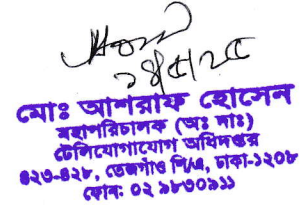 ১৪/৫/২৫
মোঃ আশরাফ হোসেন
মহাপরিচালক (অঃ দাঃ)
টেলিযোগাযোগ অধিদপ্তর
৪২৩-৪২৮, তেজগাঁও শি/এ, ঢাকা-১২০৮
ফোন: ০২ ৯৮৩০৯১১